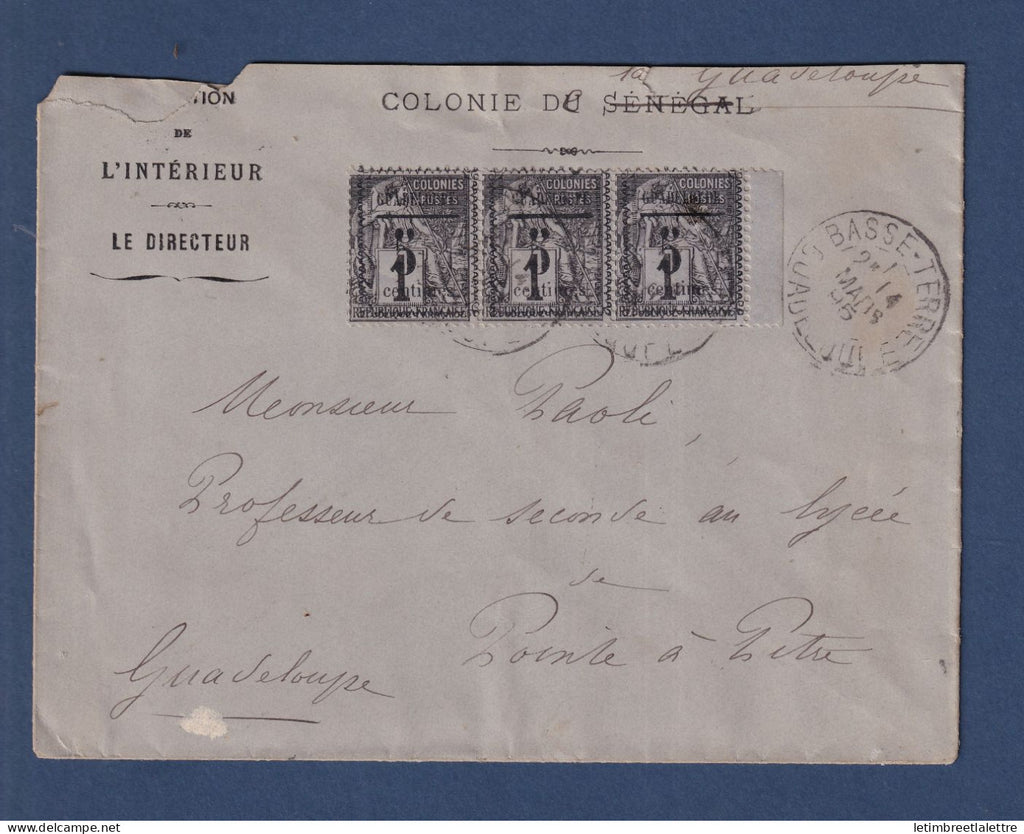 TION
DE
L'INTÉRIEUR
LE DIRECTEUR
la Guadeloupe
COLONIE DE SÉNÉGAL
COLONIES
GUADELOUPE POSTES
5
1
centimes
RÉPUBLIQUE FRANÇAISE
COLONIES
GUADELOUPE POSTES
5
1
centimes
RÉPUBLIQUE FRANÇAISE
COLONIES
GUADELOUPE POSTES
5
1
centimes
RÉPUBLIQUE FRANÇAISE
BASSE-TERRE
14
MARS
GUADELOUPE
Monsieur Paoli,
Professeur de seconde au lycée
de
Pointe à Pitre
Guadeloupe
letimbreetlalettre